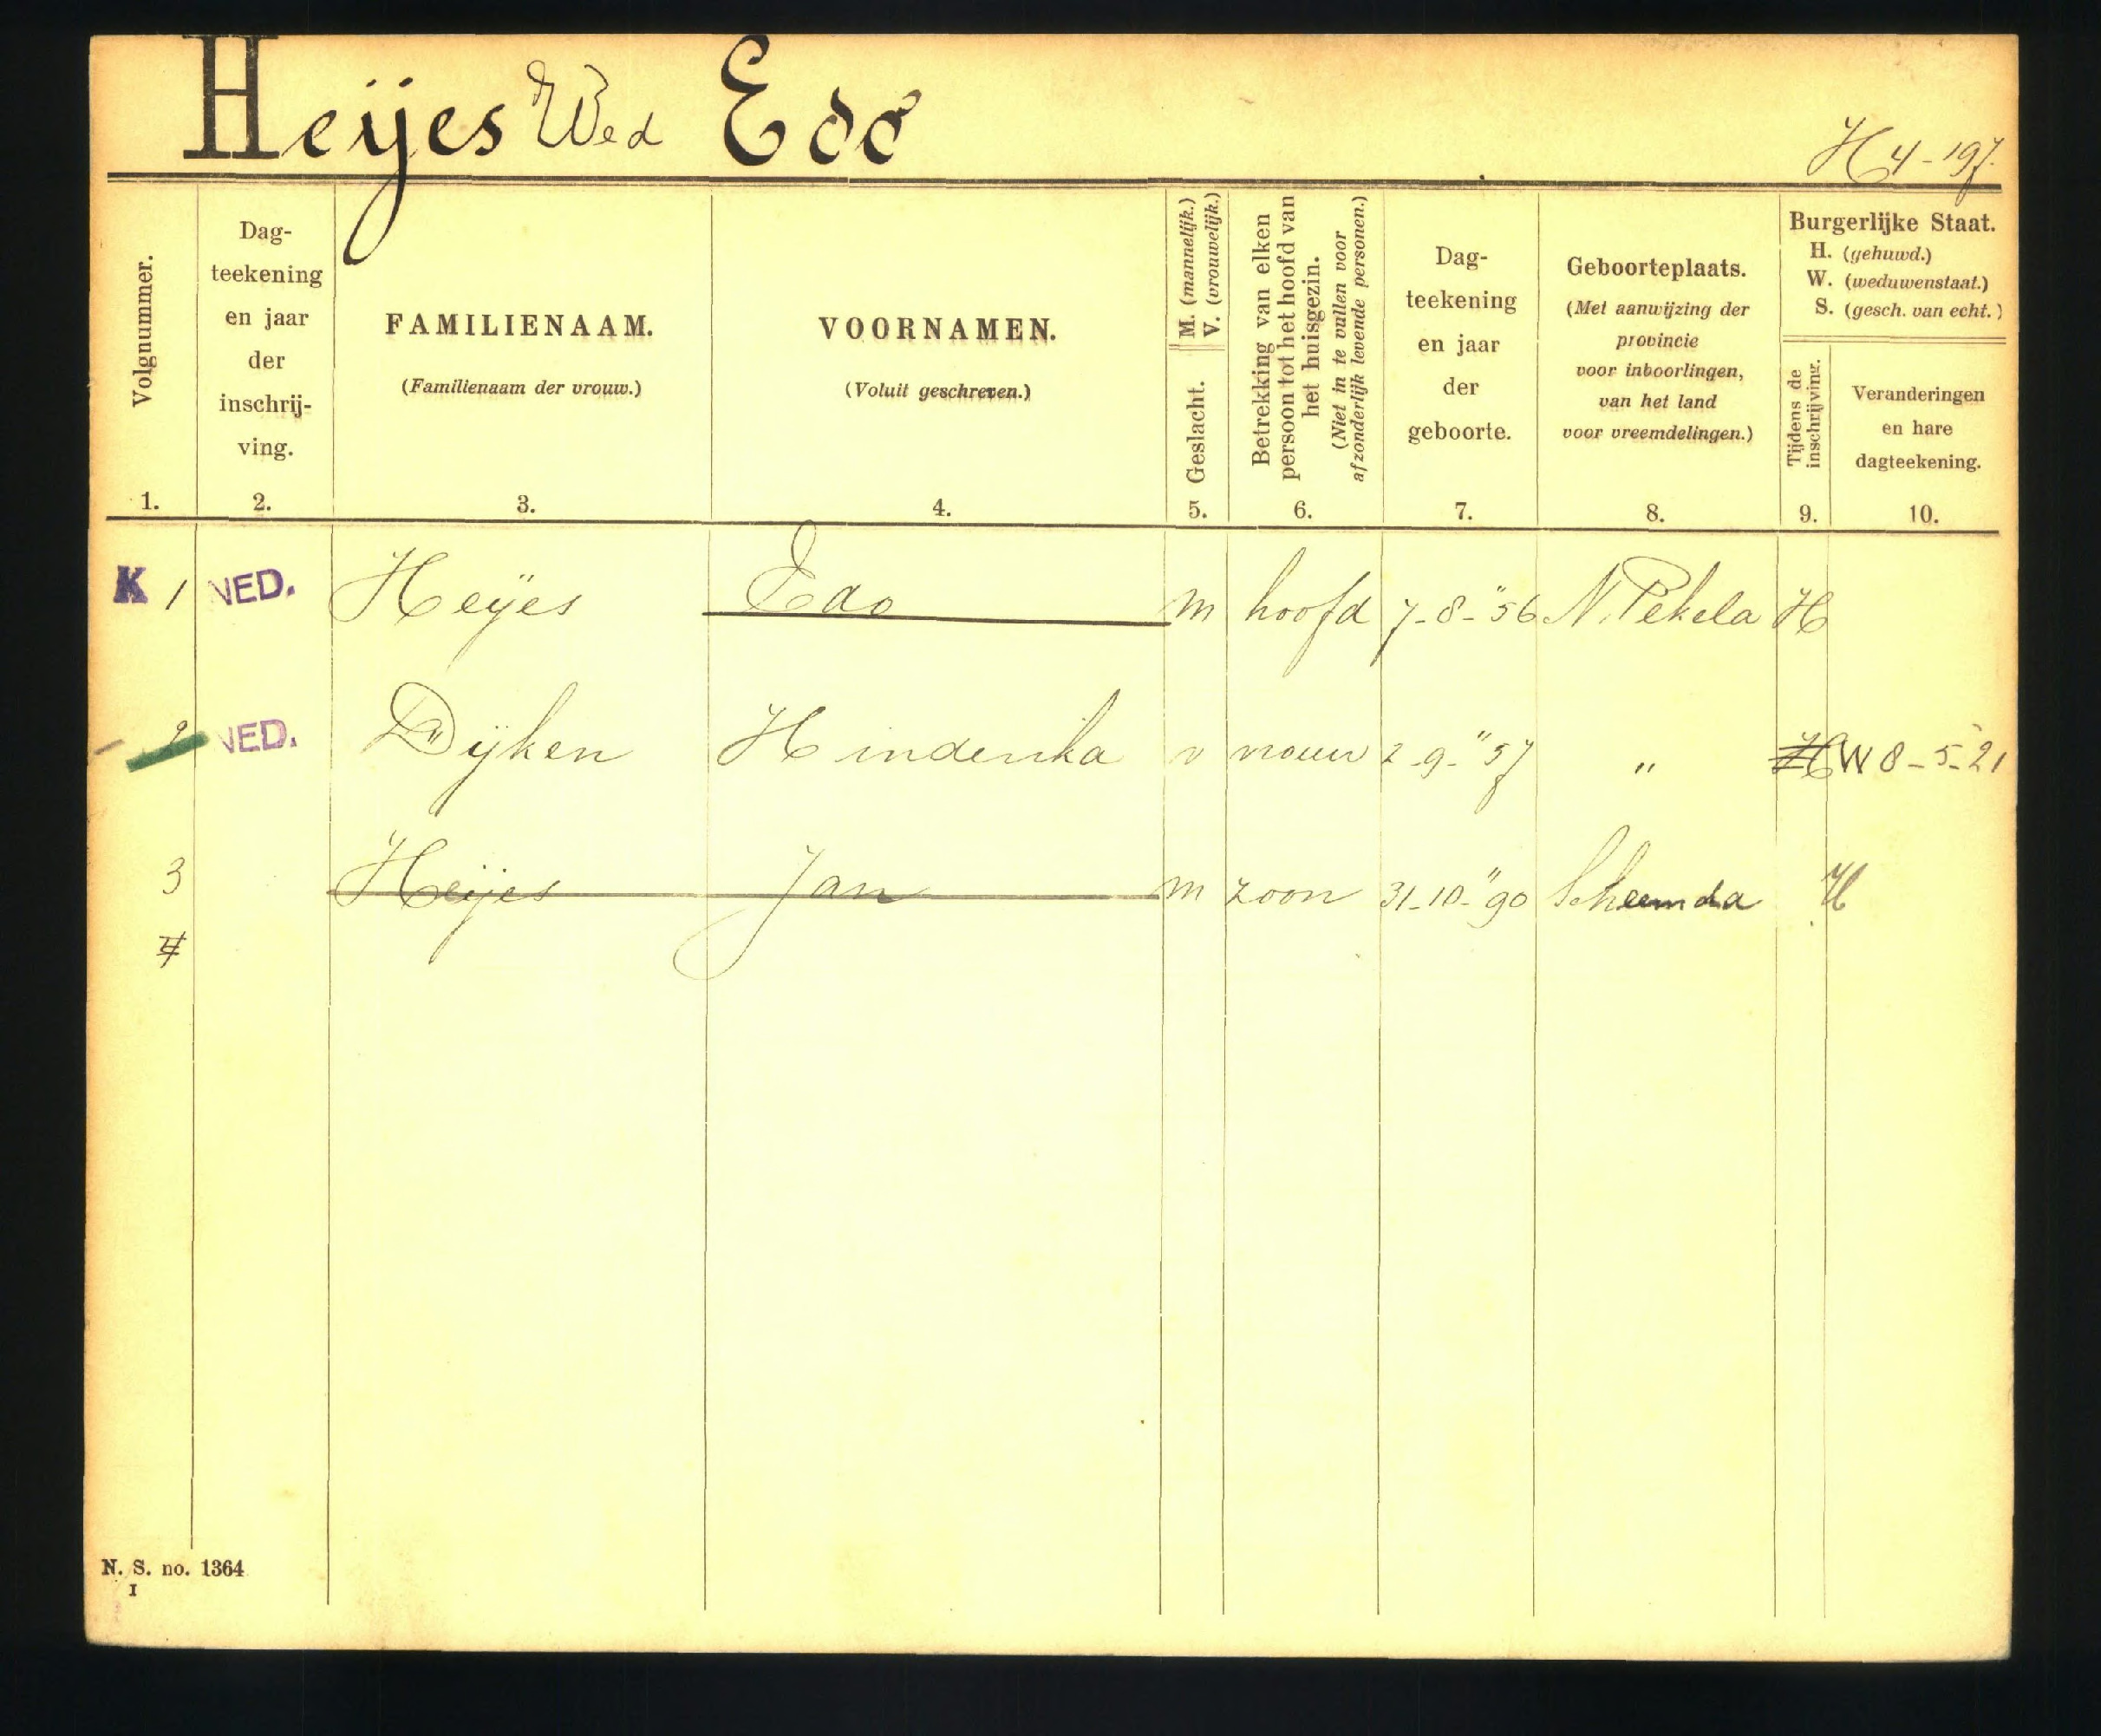 Heijes Wed Edo
H 4-197.
Volgnummer.
1.
Dag-
teekening
en jaar
der
inschrij-
ving.
2.
FAMILIENAAM.
(Familienaam der vrouw.)
3.
VOORNAMEN.
(Voluit geschreven.)
4.
M. (mannelijk.)
V. (vrouwelijk.)
Geslacht.
5.
Betrekking van elken
persoon tot het hoofd van
het huisgezin.
(Niet in te vullen voor
afzonderlijk levende personen.)
6.
Dag-
teekening
en jaar
der
geboorte.
7.
Geboorteplaats.
(Met aanwijzing der
provincie
voor inboorlingen,
van het land
voor vreemdelingen.)
8.
Burgerlijke Staat.
H. (gehuwd.)
W. (weduwenstaat.)
S. (gesch. van echt.)
Tijdens de
inschrijving.
9.
Veranderingen
en hare
dagteekening.
10.
K 1 NED. Heijes Edo m hoofd 7-8-"56 N. Pekela H
2 NED. Dijken Hinderika v vrouw 2-9-"57 " H W 8-5-21
3 Heijes Jan m zoon 31-10-"90 Scheemda H
4
N. S. no. 1364
I